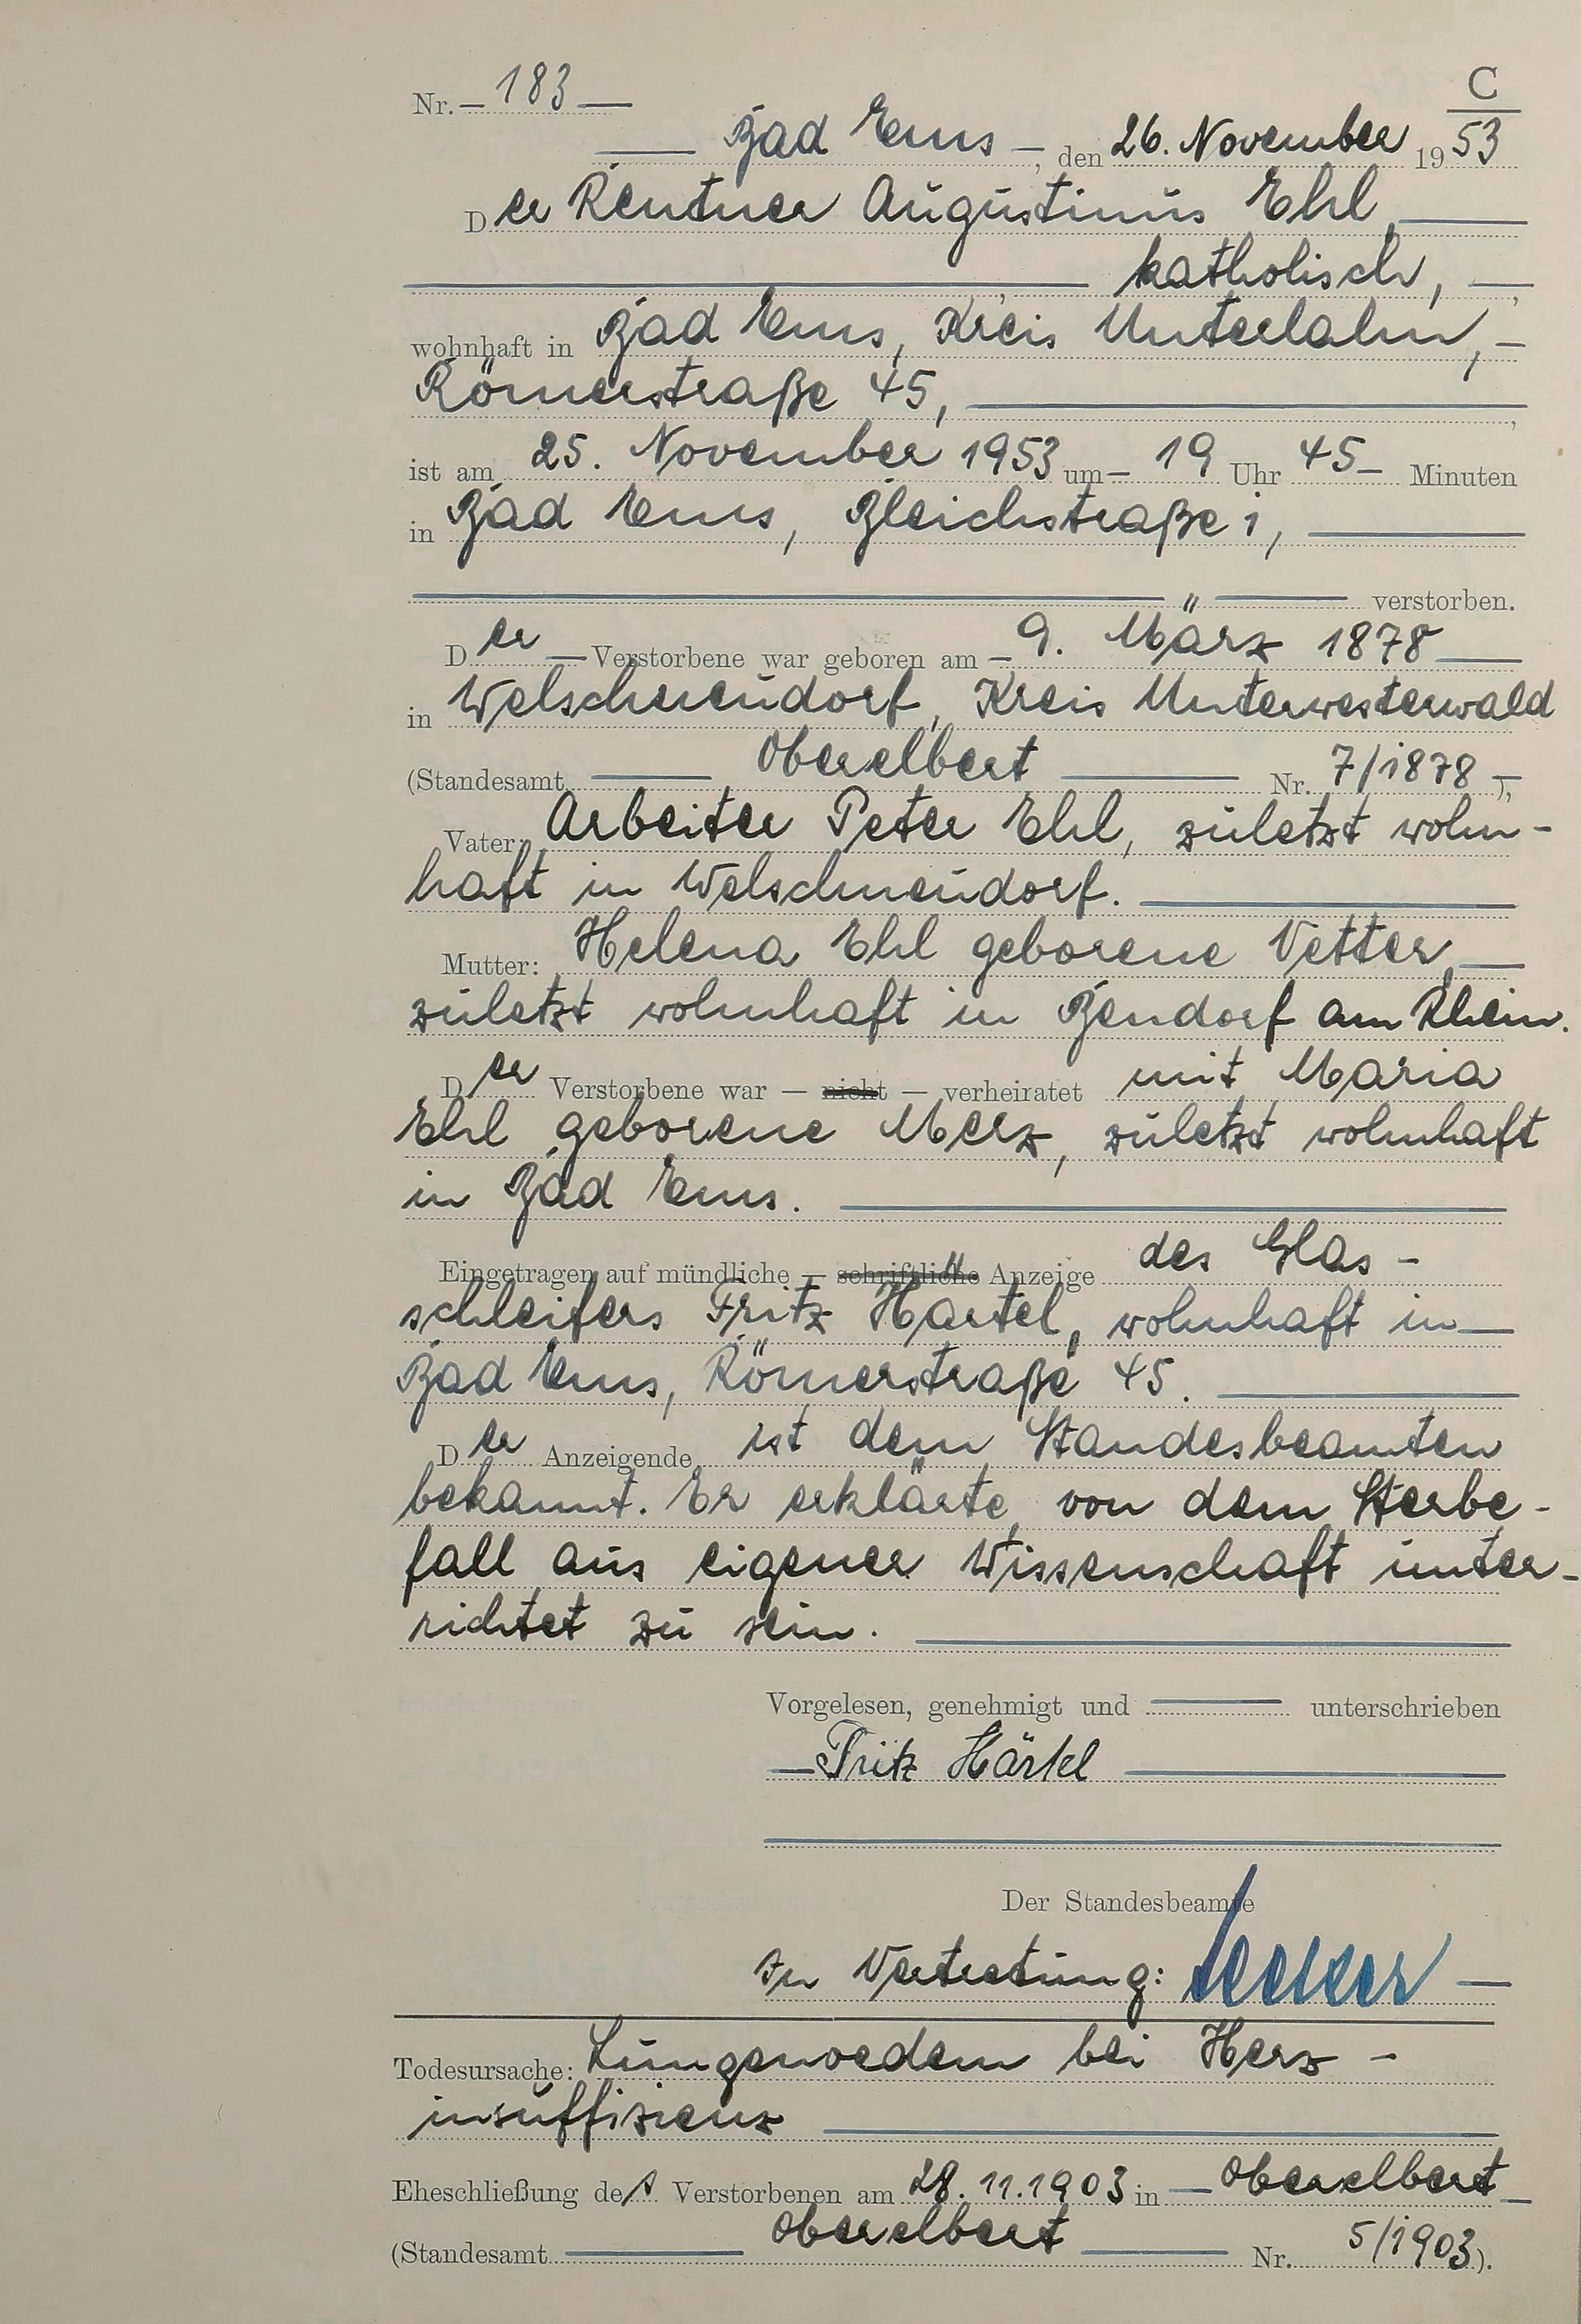 C
Nr. – 183 —
Bad Ems –, den 26. November 1953
Der Rentner Augustinus Ehl,
katholisch,
wohnhaft in Bad Ems, Kreis Unterlahn, –
Römerstraße 45,
ist am 25. November 1953 um – 19 Uhr 45 – Minuten
in Bad Ems, Bleichstraße 1,
verstorben.
Der — Verstorbene war geboren am – 9. März 1878 —
in Welschneudorf, Kreis Unterwesterwald
(Standesamt — Oberelbert — Nr. 7/1878 –),
Vater: Arbeiter Peter Ehl, zuletzt wohn-
haft in Welschneudorf.
Mutter: Helena Ehl geborene Vetter, —
zuletzt wohnhaft in Bendorf am Rhein.
Der Verstorbene war — nicht — verheiratet mit Maria
Ehl geborene Merz, zuletzt wohnhaft
in Bad Ems.
Eingetragen auf mündliche — schriftliche Anzeige des Glas-
schleifers Fritz Härtel, wohnhaft in —
Bad Ems, Römerstraße 45.
Der Anzeigende ist dem Standesbeamten
bekannt. Er erklärte, von dem Sterbe-
fall aus eigener Wissenschaft unter-
richtet zu sein.
Vorgelesen, genehmigt und — unterschrieben
— Fritz Härtel —
Der Standesbeamte
In Vertretung:
Todesursache: Lungenoedem bei Herz-
insuffizienz
Eheschließung des Verstorbenen am 28.11.1903 in — Oberelbert —
(Standesamt — Oberelbert — Nr. 5/1903).